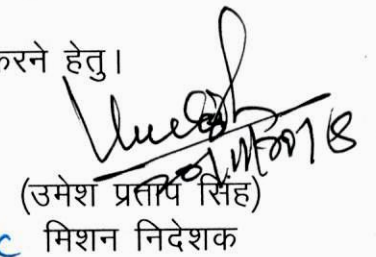 करने हेतु।
(उमेश प्रताप सिंह)
मिशन निदेशक